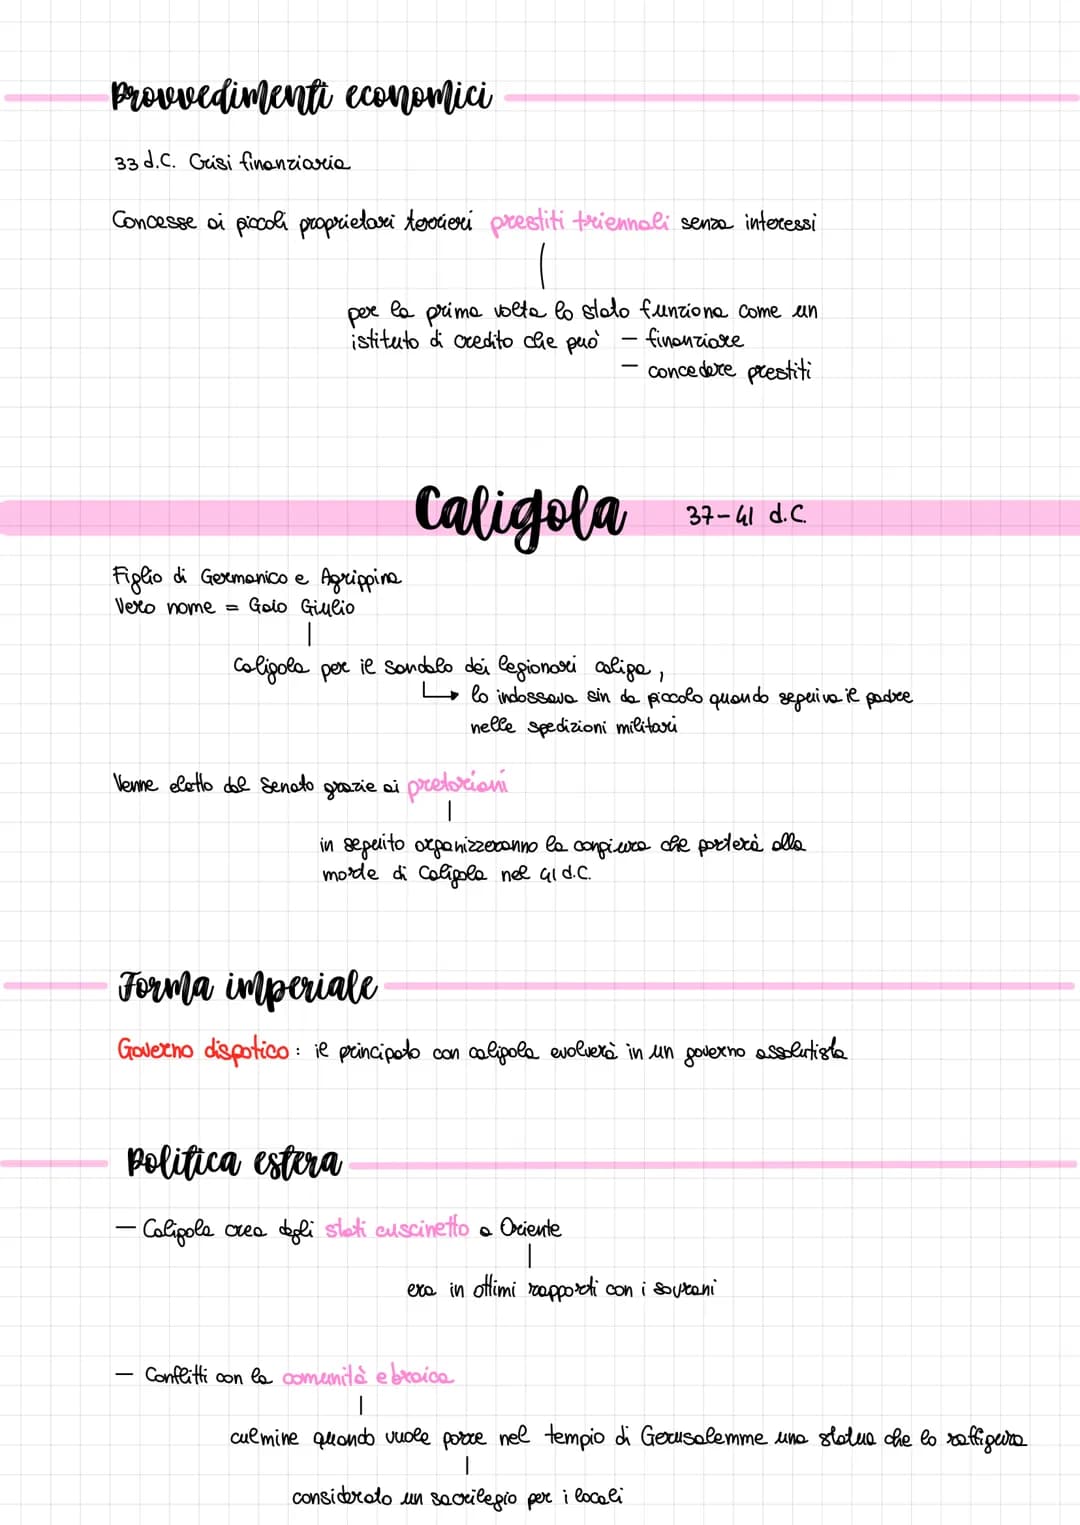 Provvedimenti economici
33 d.C. Crisi finanziaria
Concesse ai piccoli proprietari terrieri prestiti triennali senza interessi
per la prima volta lo stato funziona come un
istituto di credito che può – finanziare
– concedere prestiti
Caligola 37-41 d.C.
Figlio di Germanico e Agrippina
Vero nome = Gaio Giulio
Caligola per il sandalo dei legionari caliga,
lo indossava sin da piccolo quando seguiva il padre
nelle spedizioni militari
Venne eletto dal Senato grazie ai pretoriani
in seguito organizzeranno la congiura che porterà alla
morte di Caligola nel 41 d.C.
Forma imperiale
Governo dispotico: il principato con caligola evolverà in un governo assolutista
Politica estera
– Caligola crea degli stati cuscinetto a Oriente
era in ottimi rapporti con i sovrani
– Conflitti con la comunità ebraica
culmine quando vuole porre nel tempio di Gerusalemme una statua che lo raffigura
considerato un sacrilegio per i locali